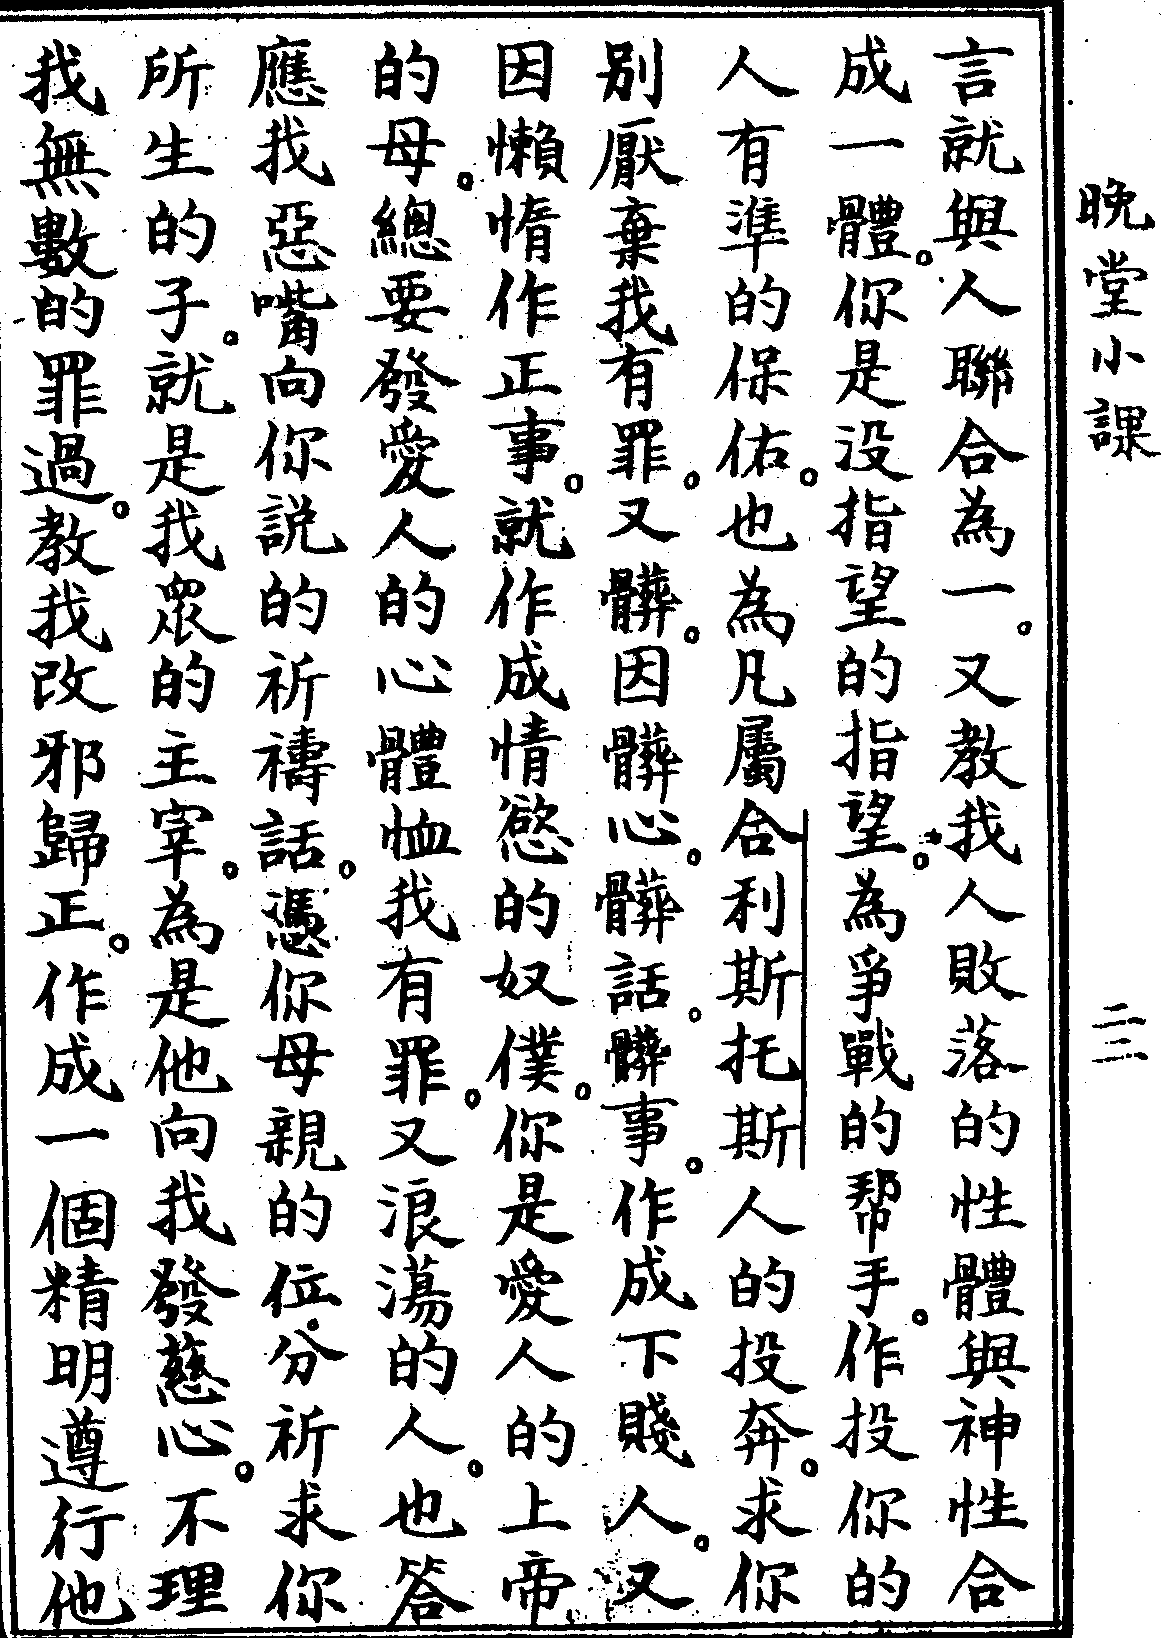 晚堂小課
二三
言就與人聯合為一。又教我人敗落的性體與神性合
成一體。你是没指望的指望。為爭戰的帮手。作投你的
人有準的保佑。也為凡屬合利斯托斯人的投奔。求你
别厭棄我有罪。又髒。因髒心。髒話。髒事。作成下賤人。又
因懶惰作正事。就作成情慾的奴僕。你是愛人的上帝
的母。總要發愛人的心體恤我有罪。又浪蕩的人。也答
應我惡嘴向你説的祈禱話。憑你母親的位分。祈求你
所生的子。就是我眾的主宰。為是他向我發慈心。不理
我無數的罪過。教我改邪歸正。作成一個精明遵行他